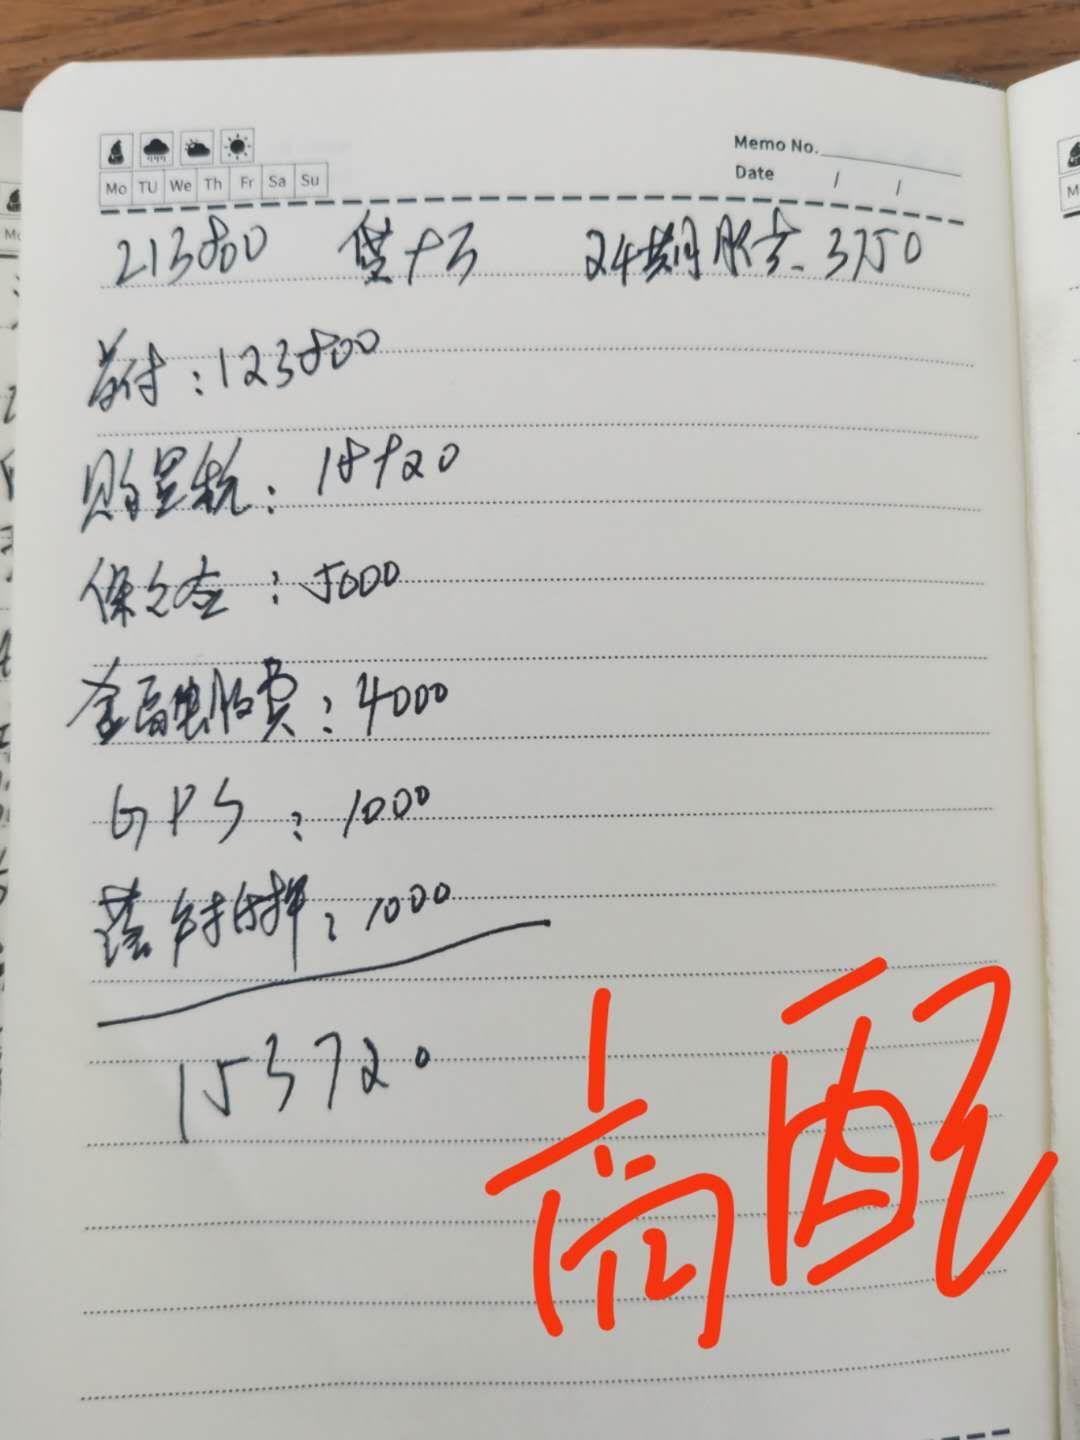 Memo No.
Mo TU We Th Fr Sa Su
Date / /
213800 贷9万 24期 月供 3750
首付：123800
购置税：18920
保险：5000
金融服务费：4000
GPS：1000
落户抵押：1000
153720
高配